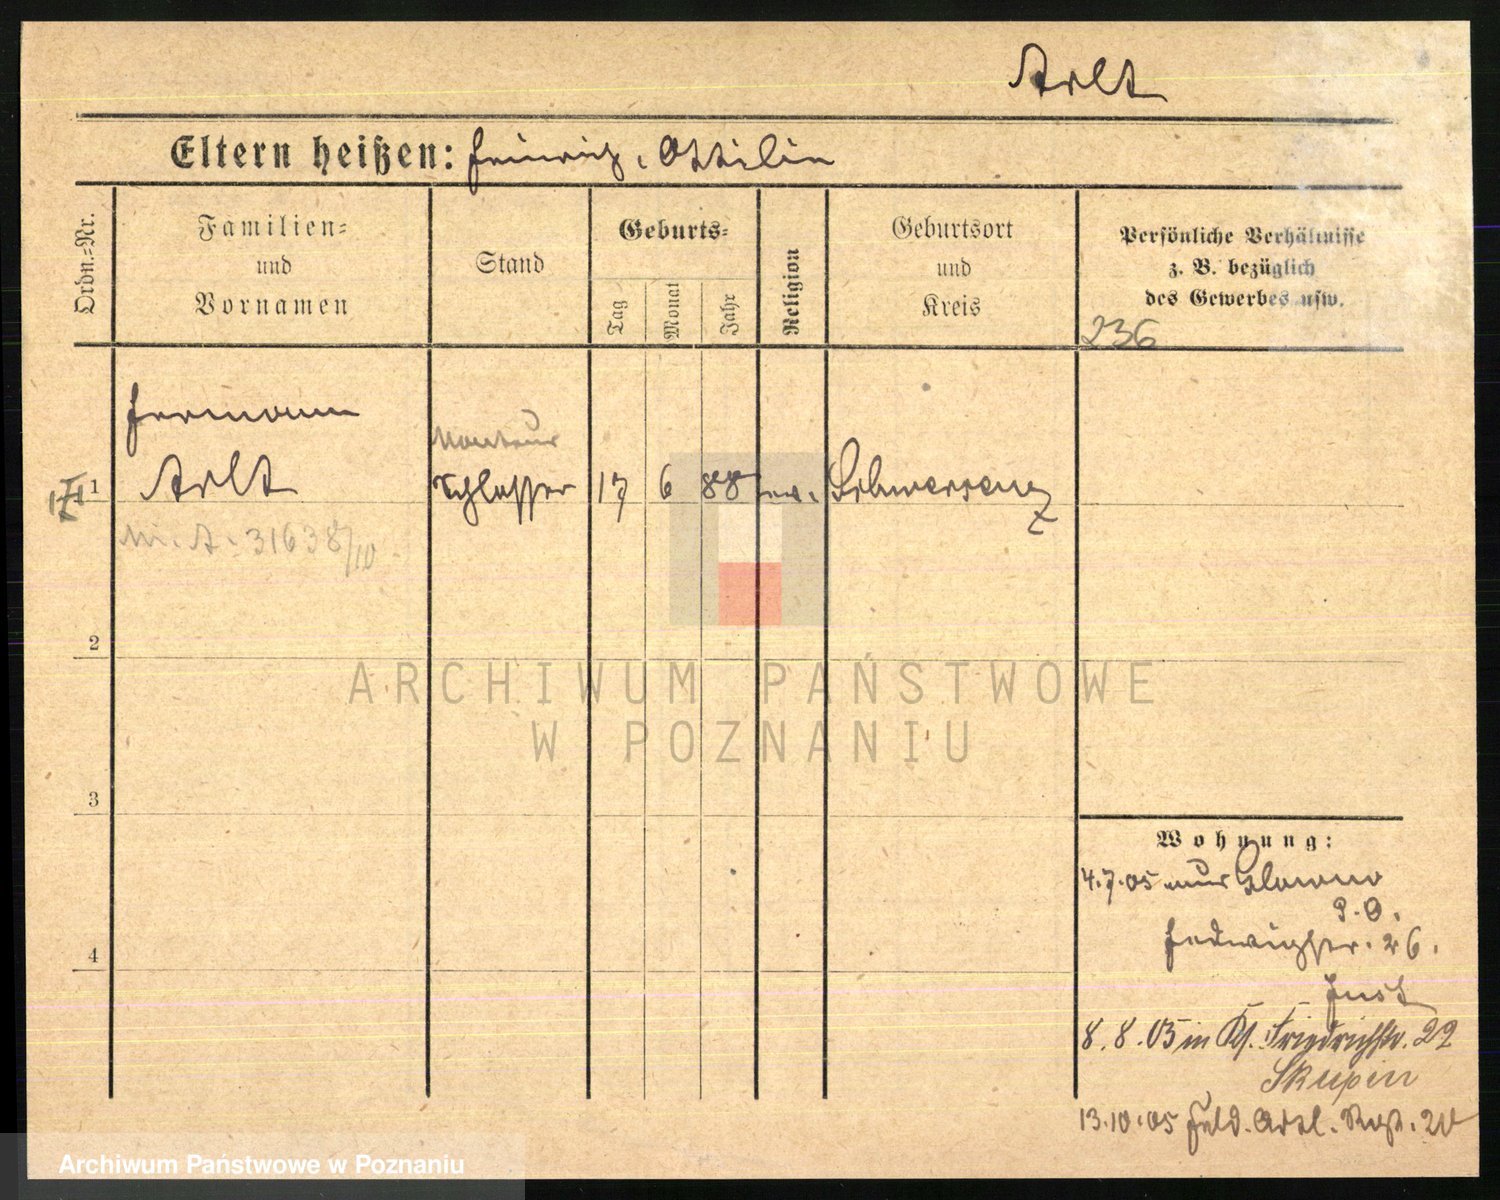 Arlt
Eltern heißen: Heinrich, Ottilie
Ordn.-Nr.
Familien-
und
Vornamen
Stand
Geburts-
Tag
Monat
Jahr
Religion
Geburtsort
und
Kreis
Persönliche Verhältnisse
z. B. bezüglich
des Gewerbes usw.
236
Hermann
Monteur
1 Arlt Schlosser 17 6 88 ev. Schwersenz
M. A. 31638/10
2
3
4
Wohnung:
4.7.05 Glowno
P. O.
Hedwigstr. 26.
Just
8.8.05 in Kl. Friedrichstr. 22
Skupin
13.10.05 Feld. Artl. Regt. 20
ARCHIWUM PAŃSTWOWE
W POZNANIU
Archiwum Państwowe w Poznaniu